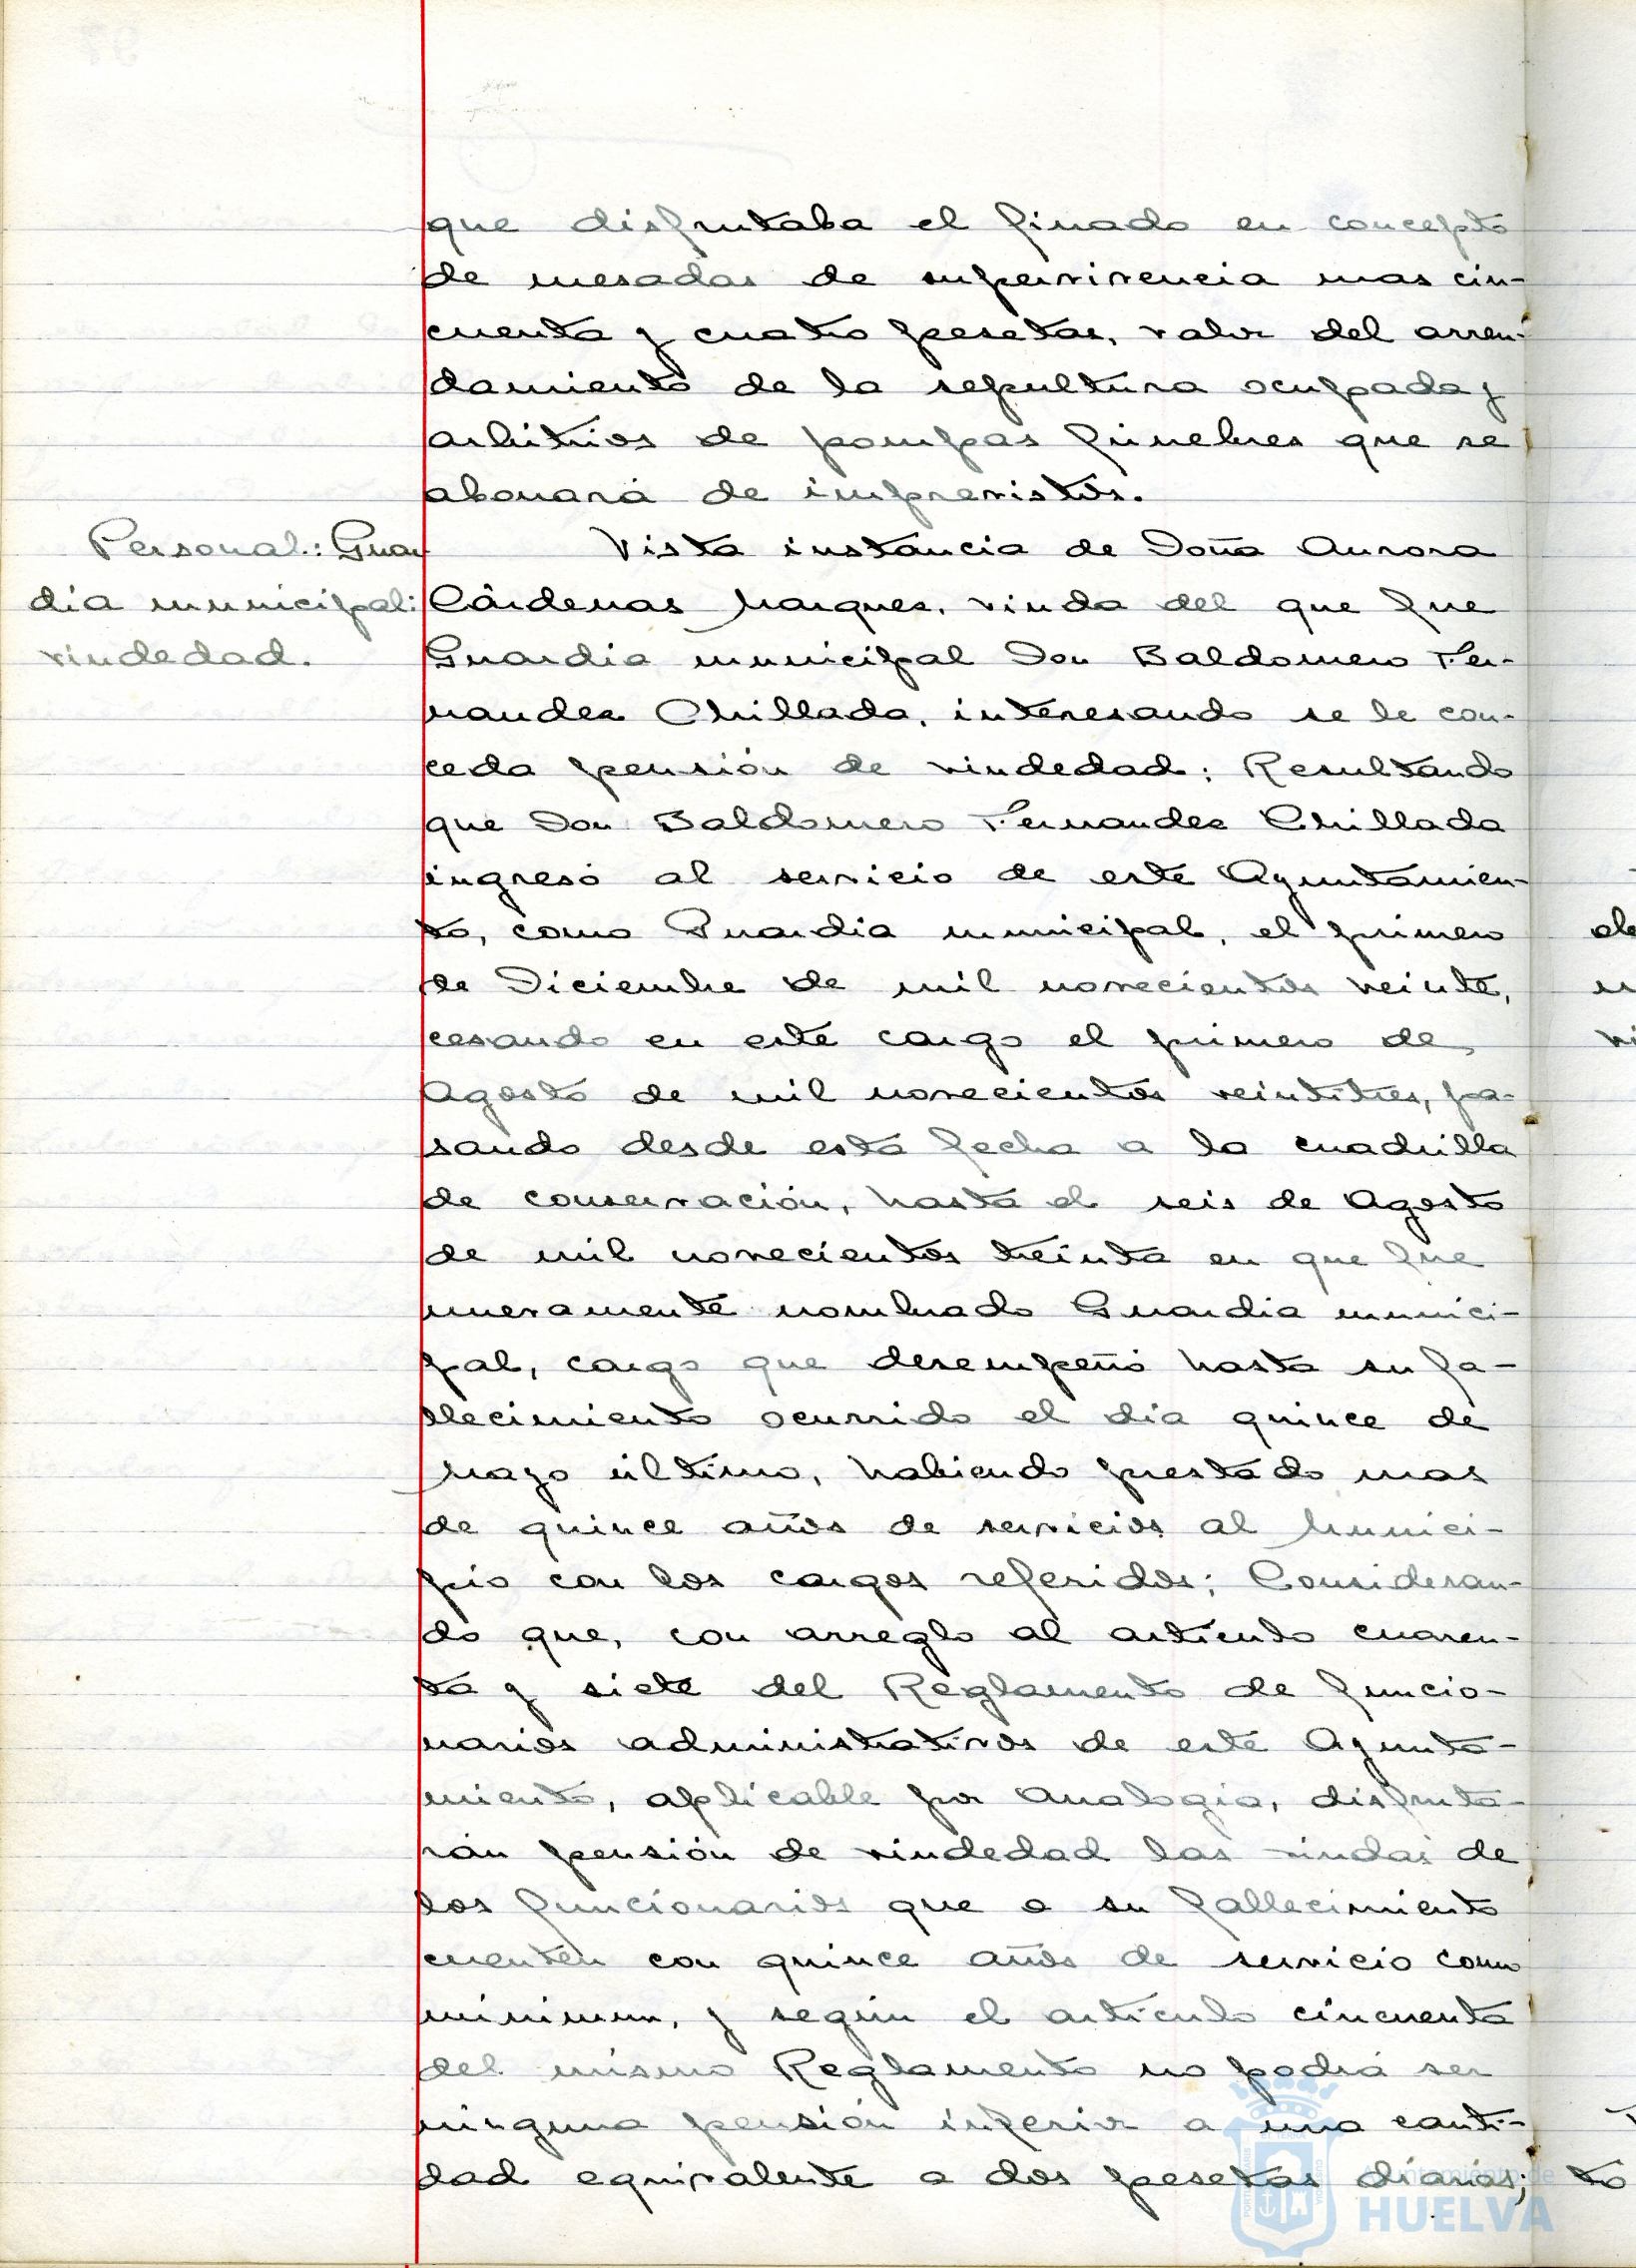 que disfrutaba el finado en concepto
de mesadas de supervivencia mas cin-
cuenta y cuatro pesetas, valor del arren-
damiento de la sepultura ocupada y
arbitrios de pompas fúnebres que se
abonará de imprevistos.
Personal: Guar
dia municipal:
viudedad.
Vista instancia de Doña Aurora
Cárdenas Marques, viuda del que fue
Guardia municipal Don Baldomero Fer-
nandez Chillada, interesando se le con-
ceda pensión de viudedad; Resultando
que Don Baldomero Fernandez Chillada
ingresó al servicio de este Ayuntamien-
to, como Guardia municipal, el primero
de Diciembre de mil novecientos veinte,
cesando en este cargo el primero de
Agosto de mil novecientos veintitres, pa-
sando desde esta fecha a la cuadrilla
de conservación, hasta el seis de Agosto
de mil novecientos treinta en que fue
nuevamente nombrado Guardia munici-
pal, cargo que desempeñó hasta su fa-
llecimiento ocurrido el día quince de
Mayo último, habiendo prestado mas
de quince años de servicios al Munici-
pio con los cargos referidos; Consideran-
do que, con arreglo al artículo cuaren-
ta y siete del Reglamento de funcio-
narios administrativos de este Ayunta-
miento, aplicable por analogia, disfruta-
rán pensión de viudedad las viudas de
los funcionarios que a su fallecimiento
cuenten con quince años de servicio como
minimun, y según el artículo cincuenta
del mismo Reglamento no podrá ser
ninguna pensión inferior a una canti-
dad equivalente a dos pesetas diarias;
Ayuntamiento de
HUELVA